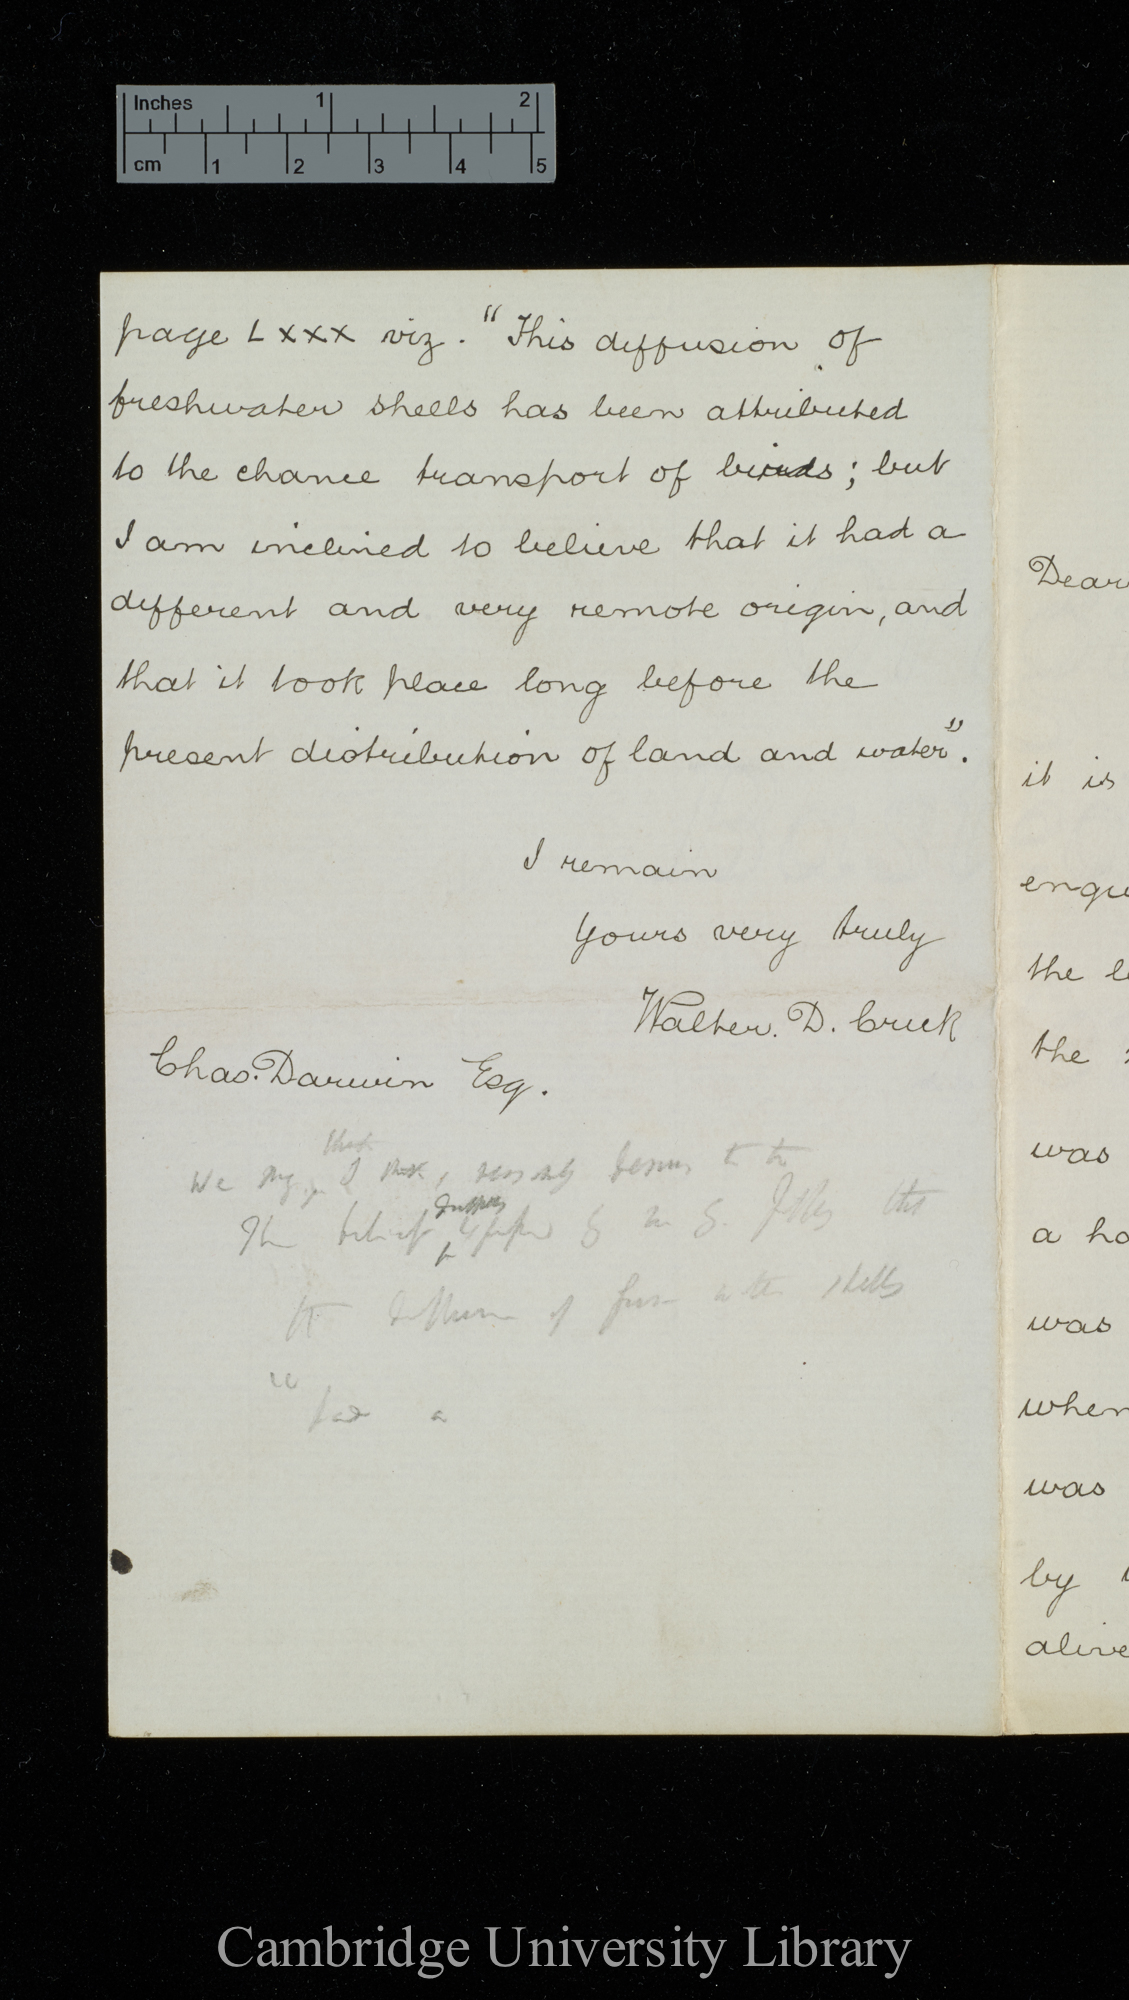 Inches 1 2
cm 1 2 3 4 5
page Lxxx viz. "This diffusion of
freshwater shells has been attributed
to the chance transport of birds; but
I am inclined to believe that it had a
different and very remote origin, and
that it took place long before the
present distribution of land and water".
I remain
Yours very truly
Walter. D. Crick
Chas. Darwin Esq.
We I
belief by that
diffusion of shells
"had a
Dear
it is
enqu
the
the
was
a
was
when
was
by
alive
Cambridge University Library